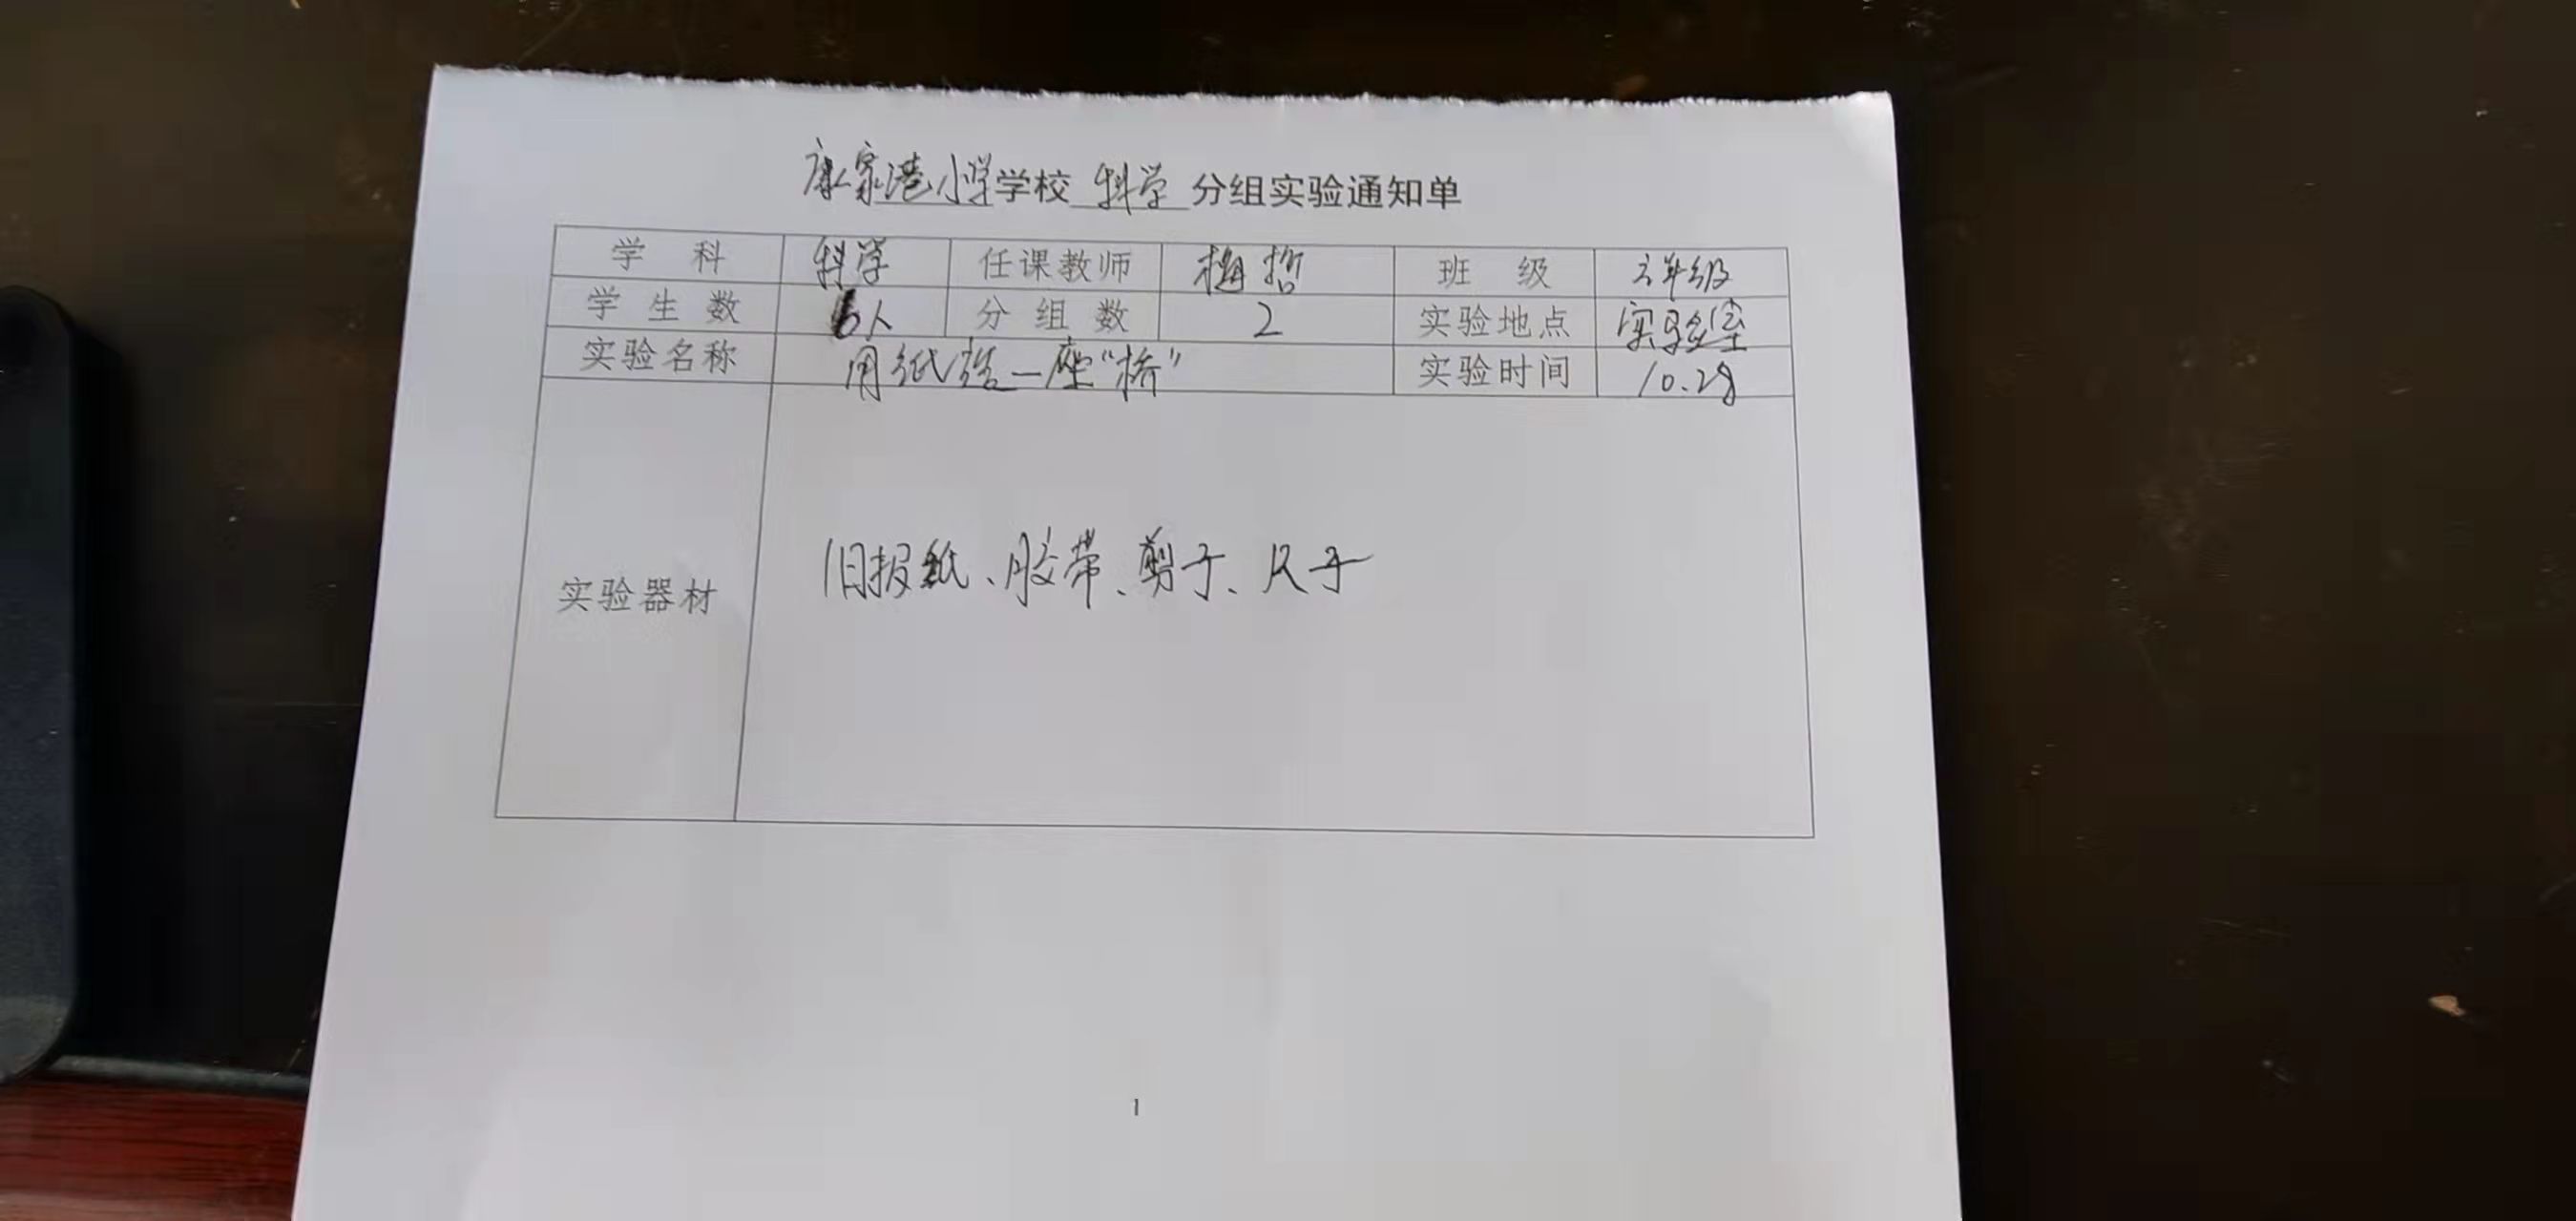 康家港小学学校 科学 分组实验通知单
学 科 科学 任课教师 梅哲 班 级 六年级
学生数 6人 分组数 2 实验地点 实验室
实验名称 用纸造一座“桥” 实验时间 10.28
实验器材 旧报纸、胶带、剪子、尺子
1